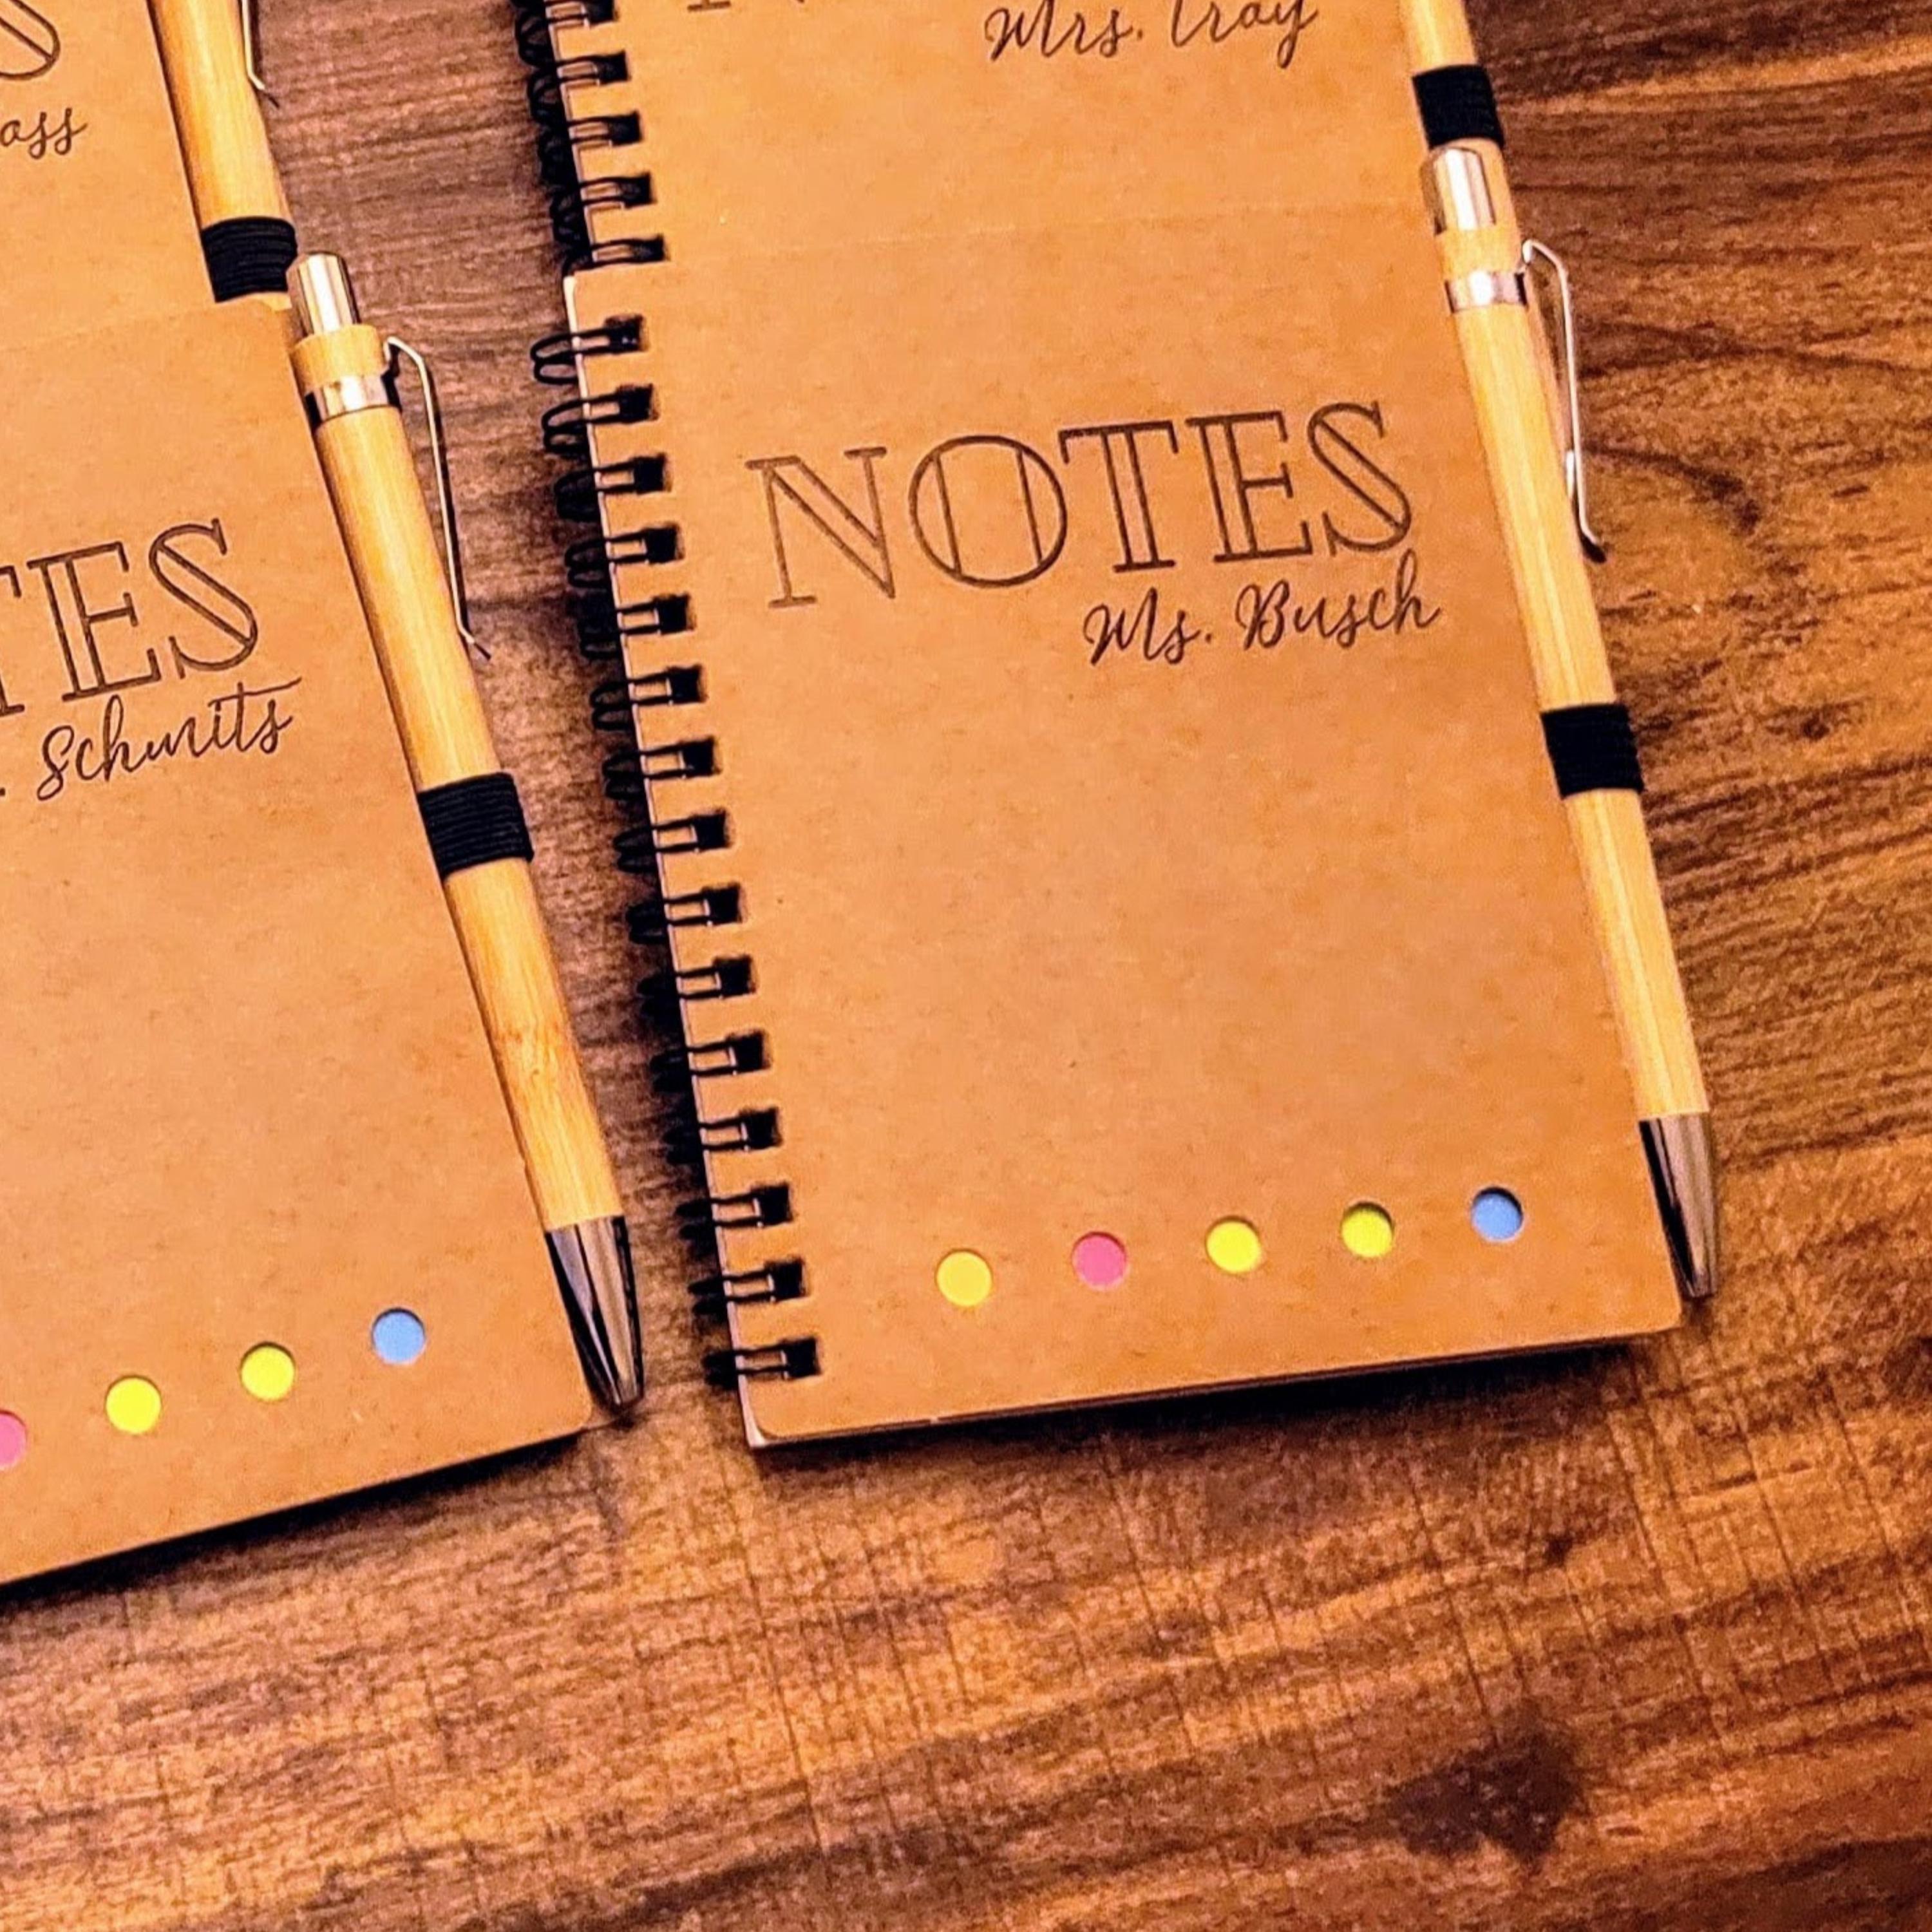 Mrs. Cray
NOTES
Ms. Busch
TES
. Schmits